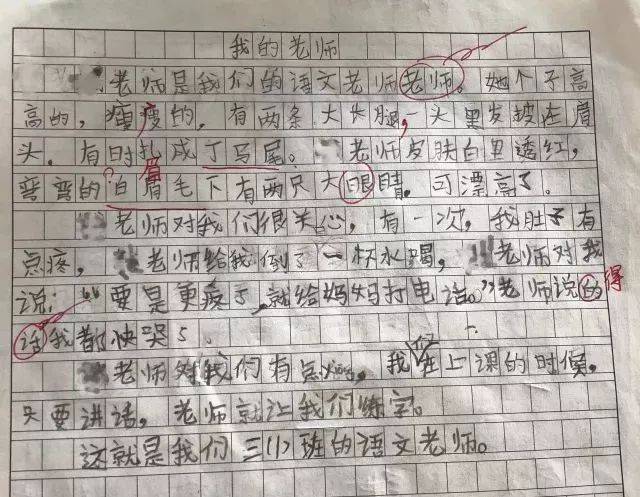 我的老师
老师是我们的语文老师老师。她个子高
高的，瘦瘦的，有两条大长腿，一头黑发披在眉
头。有时扎成丁马尾。老师皮肤白里透红，
弯弯的眉毛下有两只大眼睛。可漂亮了。
老师对我们很关心，有一次，我肚子有
点疼，老师给我倒了一杯水喝，老师对我
说：“要是更疼了，就给妈妈打电话。”老师说的得
话我都快哭了。
老师对我们有点xiong，我们在上课的时候，
只要讲话，老师就让我们练字。
这就是我们三(1)班的语文老师。